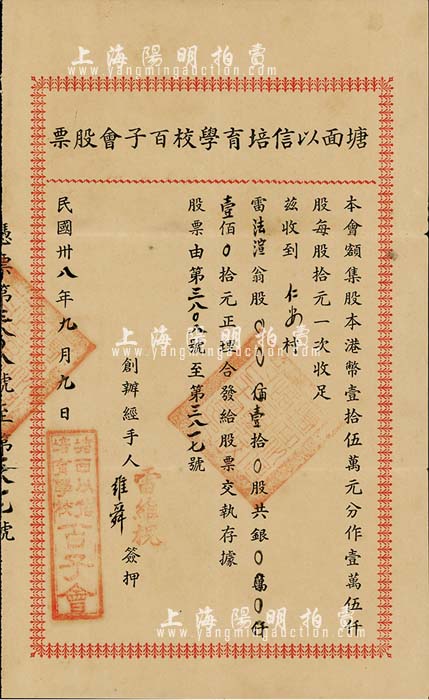 上海陽明拍賣
www.yangmingauction.com
塘面以信培育學校百子會股票
本會額集股本港幣壹拾伍萬元分作壹萬伍仟
股每股拾元一次收足
茲收到 仁岁村
雷法渲翁股〇〇佰壹拾〇股共銀〇萬〇仟
壹佰〇拾元正理合發給股票交執存據
股票由第三八〇八號至第三八一七號
創辦經手人 雷維棁 維舜 簽押
民國卅八年九月九日
塘面以信
培育學校
百子會
憑票第三八〇八號至第三八一七號
上海陽明拍賣
www.yangmingauction.com
上海陽明拍賣
www.yangmingauction.com